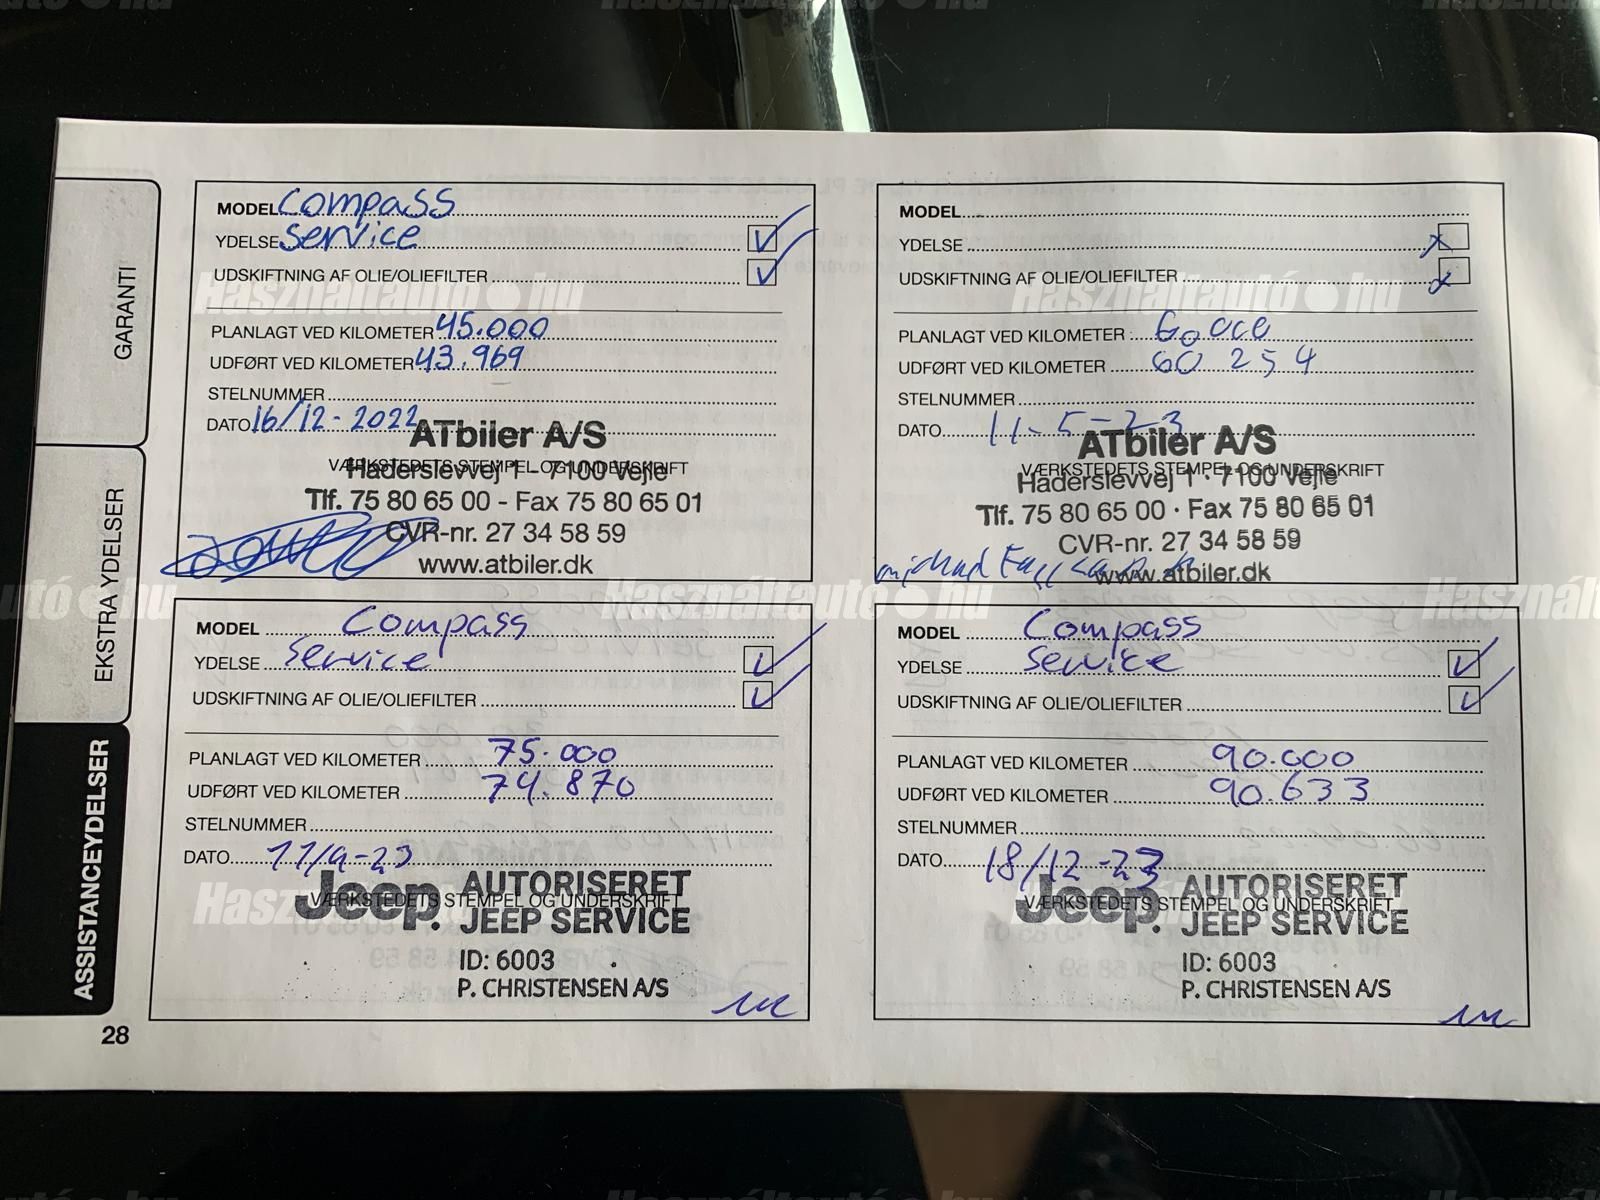 Használtautó.hu
GARANTI
EKSTRA YDELSER
ASSISTANCEYDELSER
28
MODEL Compass
YDELSE Service
UDSKIFTNING AF OLIE/OLIEFILTER
PLANLAGT VED KILOMETER 45.000
UDFØRT VED KILOMETER 43.969
STELNUMMER
DATO 16/12-2022
ATbiler A/S
VÆRKSTEDETS STEMPEL OG UNDERSKRIFT
Haderslevvej 1 · 7100 Vejle
Tlf. 75 80 65 00 - Fax 75 80 65 01
CVR-nr. 27 34 58 59
www.atbiler.dk
MODEL
YDELSE
UDSKIFTNING AF OLIE/OLIEFILTER
PLANLAGT VED KILOMETER : 60 000
UDFØRT VED KILOMETER 60 254
STELNUMMER
DATO 11-5-23
ATbiler A/S
VÆRKSTEDETS STEMPEL OG UNDERSKRIFT
Haderslevvej 1 · 7100 Vejle
Tlf. 75 80 65 00 · Fax 75 80 65 01
CVR-nr. 27 34 58 59
www.atbiler.dk
MODEL Compass
YDELSE Service
UDSKIFTNING AF OLIE/OLIEFILTER
PLANLAGT VED KILOMETER 75.000
UDFØRT VED KILOMETER 74.870
STELNUMMER
DATO 11/9-23
Jeep. AUTORISERET
VÆRKSTEDETS STEMPEL OG UNDERSKRIFT
P. JEEP SERVICE
ID: 6003
P. CHRISTENSEN A/S
MODEL Compass
YDELSE Service
UDSKIFTNING AF OLIE/OLIEFILTER
PLANLAGT VED KILOMETER 90.000
UDFØRT VED KILOMETER 90.633
STELNUMMER
DATO 18/12-23
Jeep. AUTORISERET
VÆRKSTEDETS STEMPEL OG UNDERSKRIFT
P. JEEP SERVICE
ID: 6003
P. CHRISTENSEN A/S